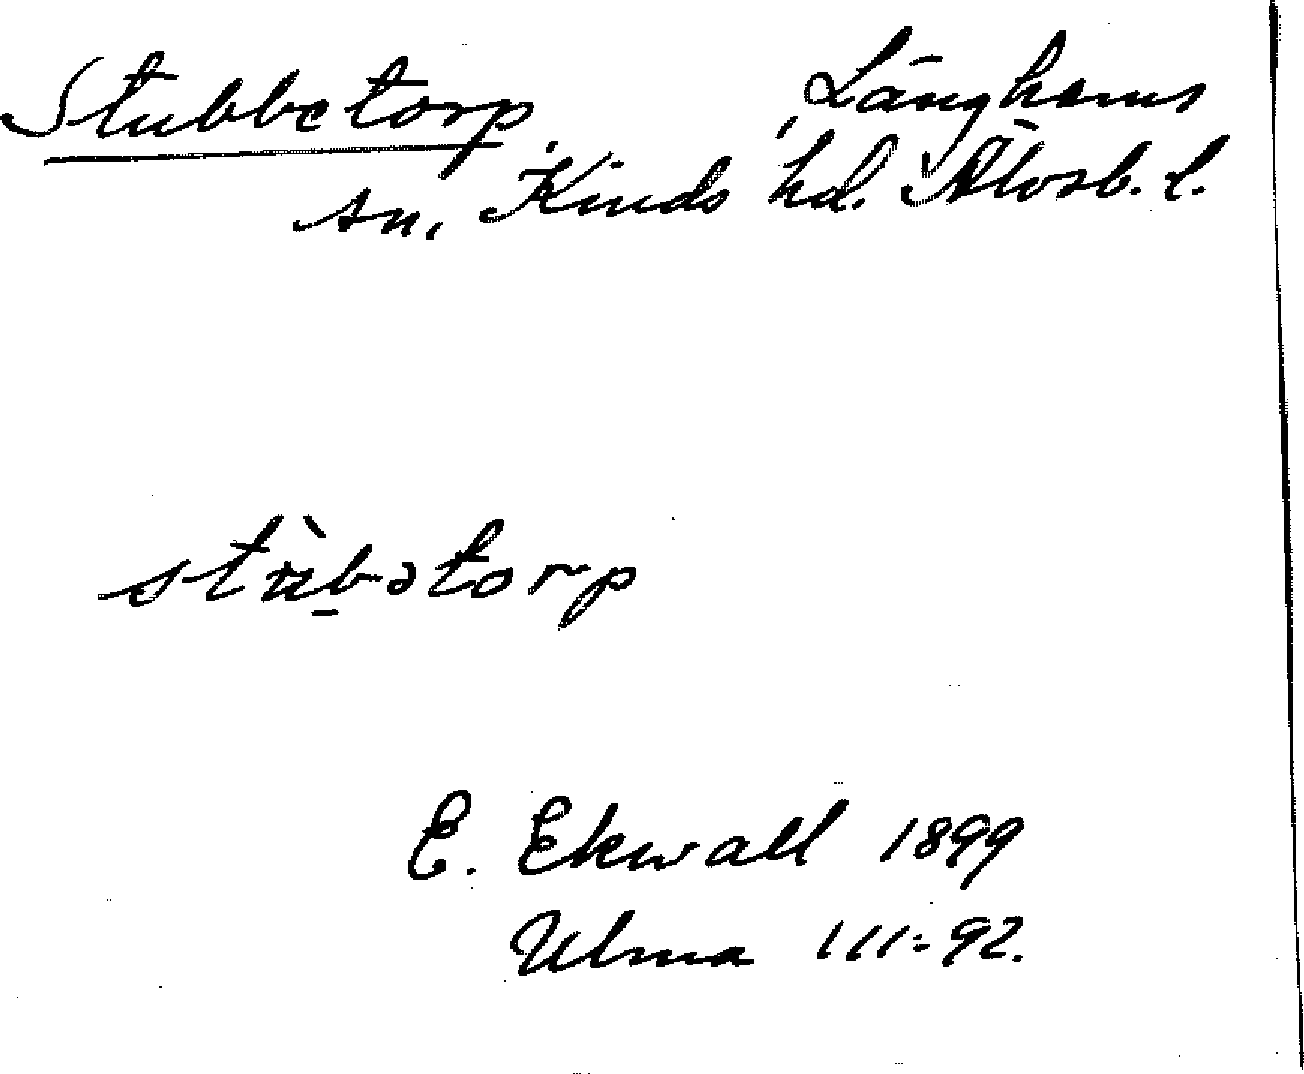 Stubbetorp, Länghems
sn, Kinds hd. Älvsb. l.
stùb̲ətorp
E. Ekwall 1899
Ulma 111:92.